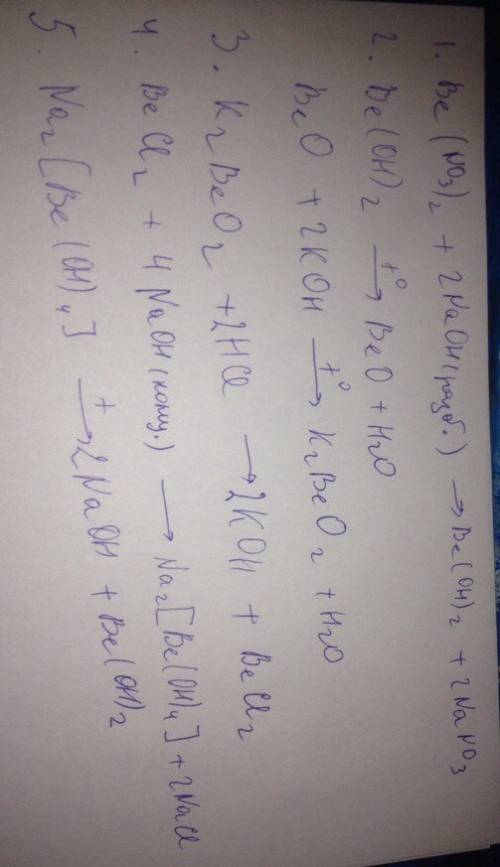 1. Be(NO3)2 + 2NaOH(разб.) → Be(OH)2 + 2NaNO3
2. Be(OH)2 →t° BeO + H2O
BeO + 2KOH →t° K2BeO2 + H2O
3. K2BeO2 + 2HCl → 2KOH + BeCl2
4. BeCl2 + 4NaOH(конц.) → Na2[Be(OH)4] + 2NaCl
5. Na2[Be(OH)4] →t 2NaOH + Be(OH)2